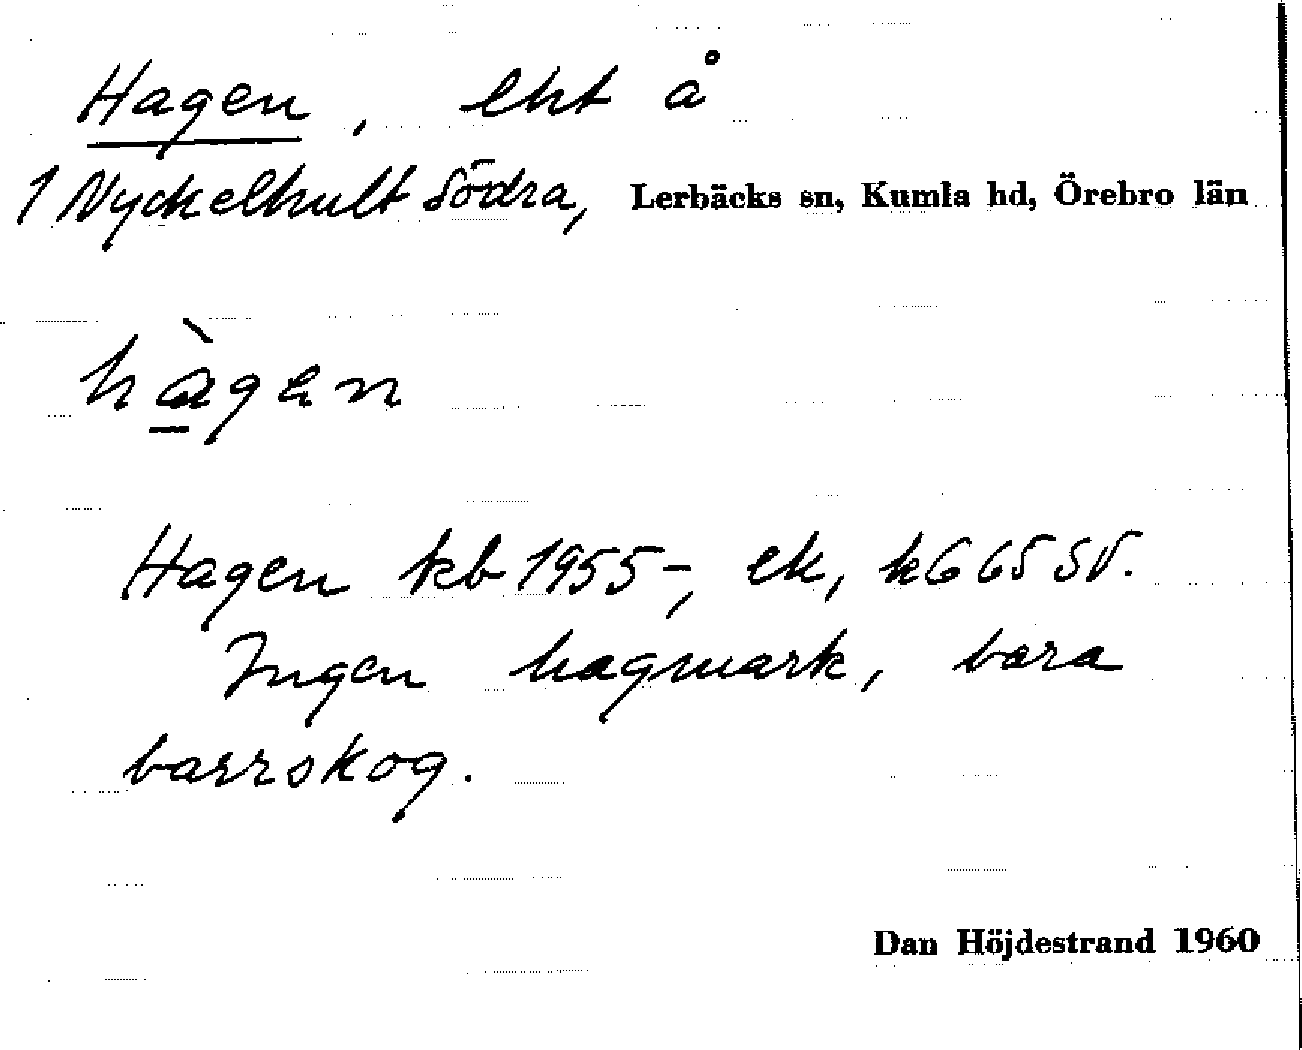 Hagen, lht å
1 Nyckelhult Södra, Lerbäcks sn, Kumla hd, Örebro län
hàgen
Hagen kb 1955-, ek, k6 65 SV.
Ingen hagmark, bara
barrskog.
Dan Höjdestrand 1960